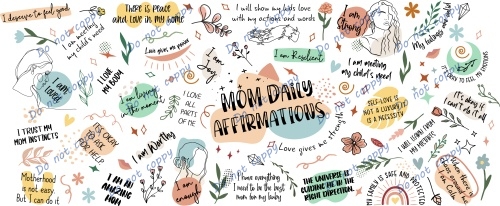 I deserve to feel good
THERE IS PEACE
AND LOVE IN MY HOME
I will show my kids love
with my actions and words
I am
Strong
My feelings
I am meeting
my child's need
Love gives me power
I am
Joy
I am Resilient
I am meeting
my child's need
IT'S OKEY TO FEEL MY EMOTIONS
I am
loved
I LOVE
MY BODY
I am enjoying
the moment
I LOVE
ALL
PARTS
OF ME
MOM DAILY
AFFIRMATIONS
SELF-LOVE IS
NOT A LUXURY IT
IS A NECESSITY
It's okay if
I can't do it all
I TRUST MY
MOM INSTINCTS
IT'S OKAY
TO ASK
FOR HELP
I am Worthy
Love gives me strength
Motherhood
is not easy
But I can do it
I AM AN
AMAZING
MOM
I am
enough
I have everything
I need to be the best
mom for my baby
THE UNIVERSE IS
GUIDING ME IN THE
RIGHT DIRECTION.
MY FAMILY IS SAFE AND PROTECTED
When there is
Do not copy